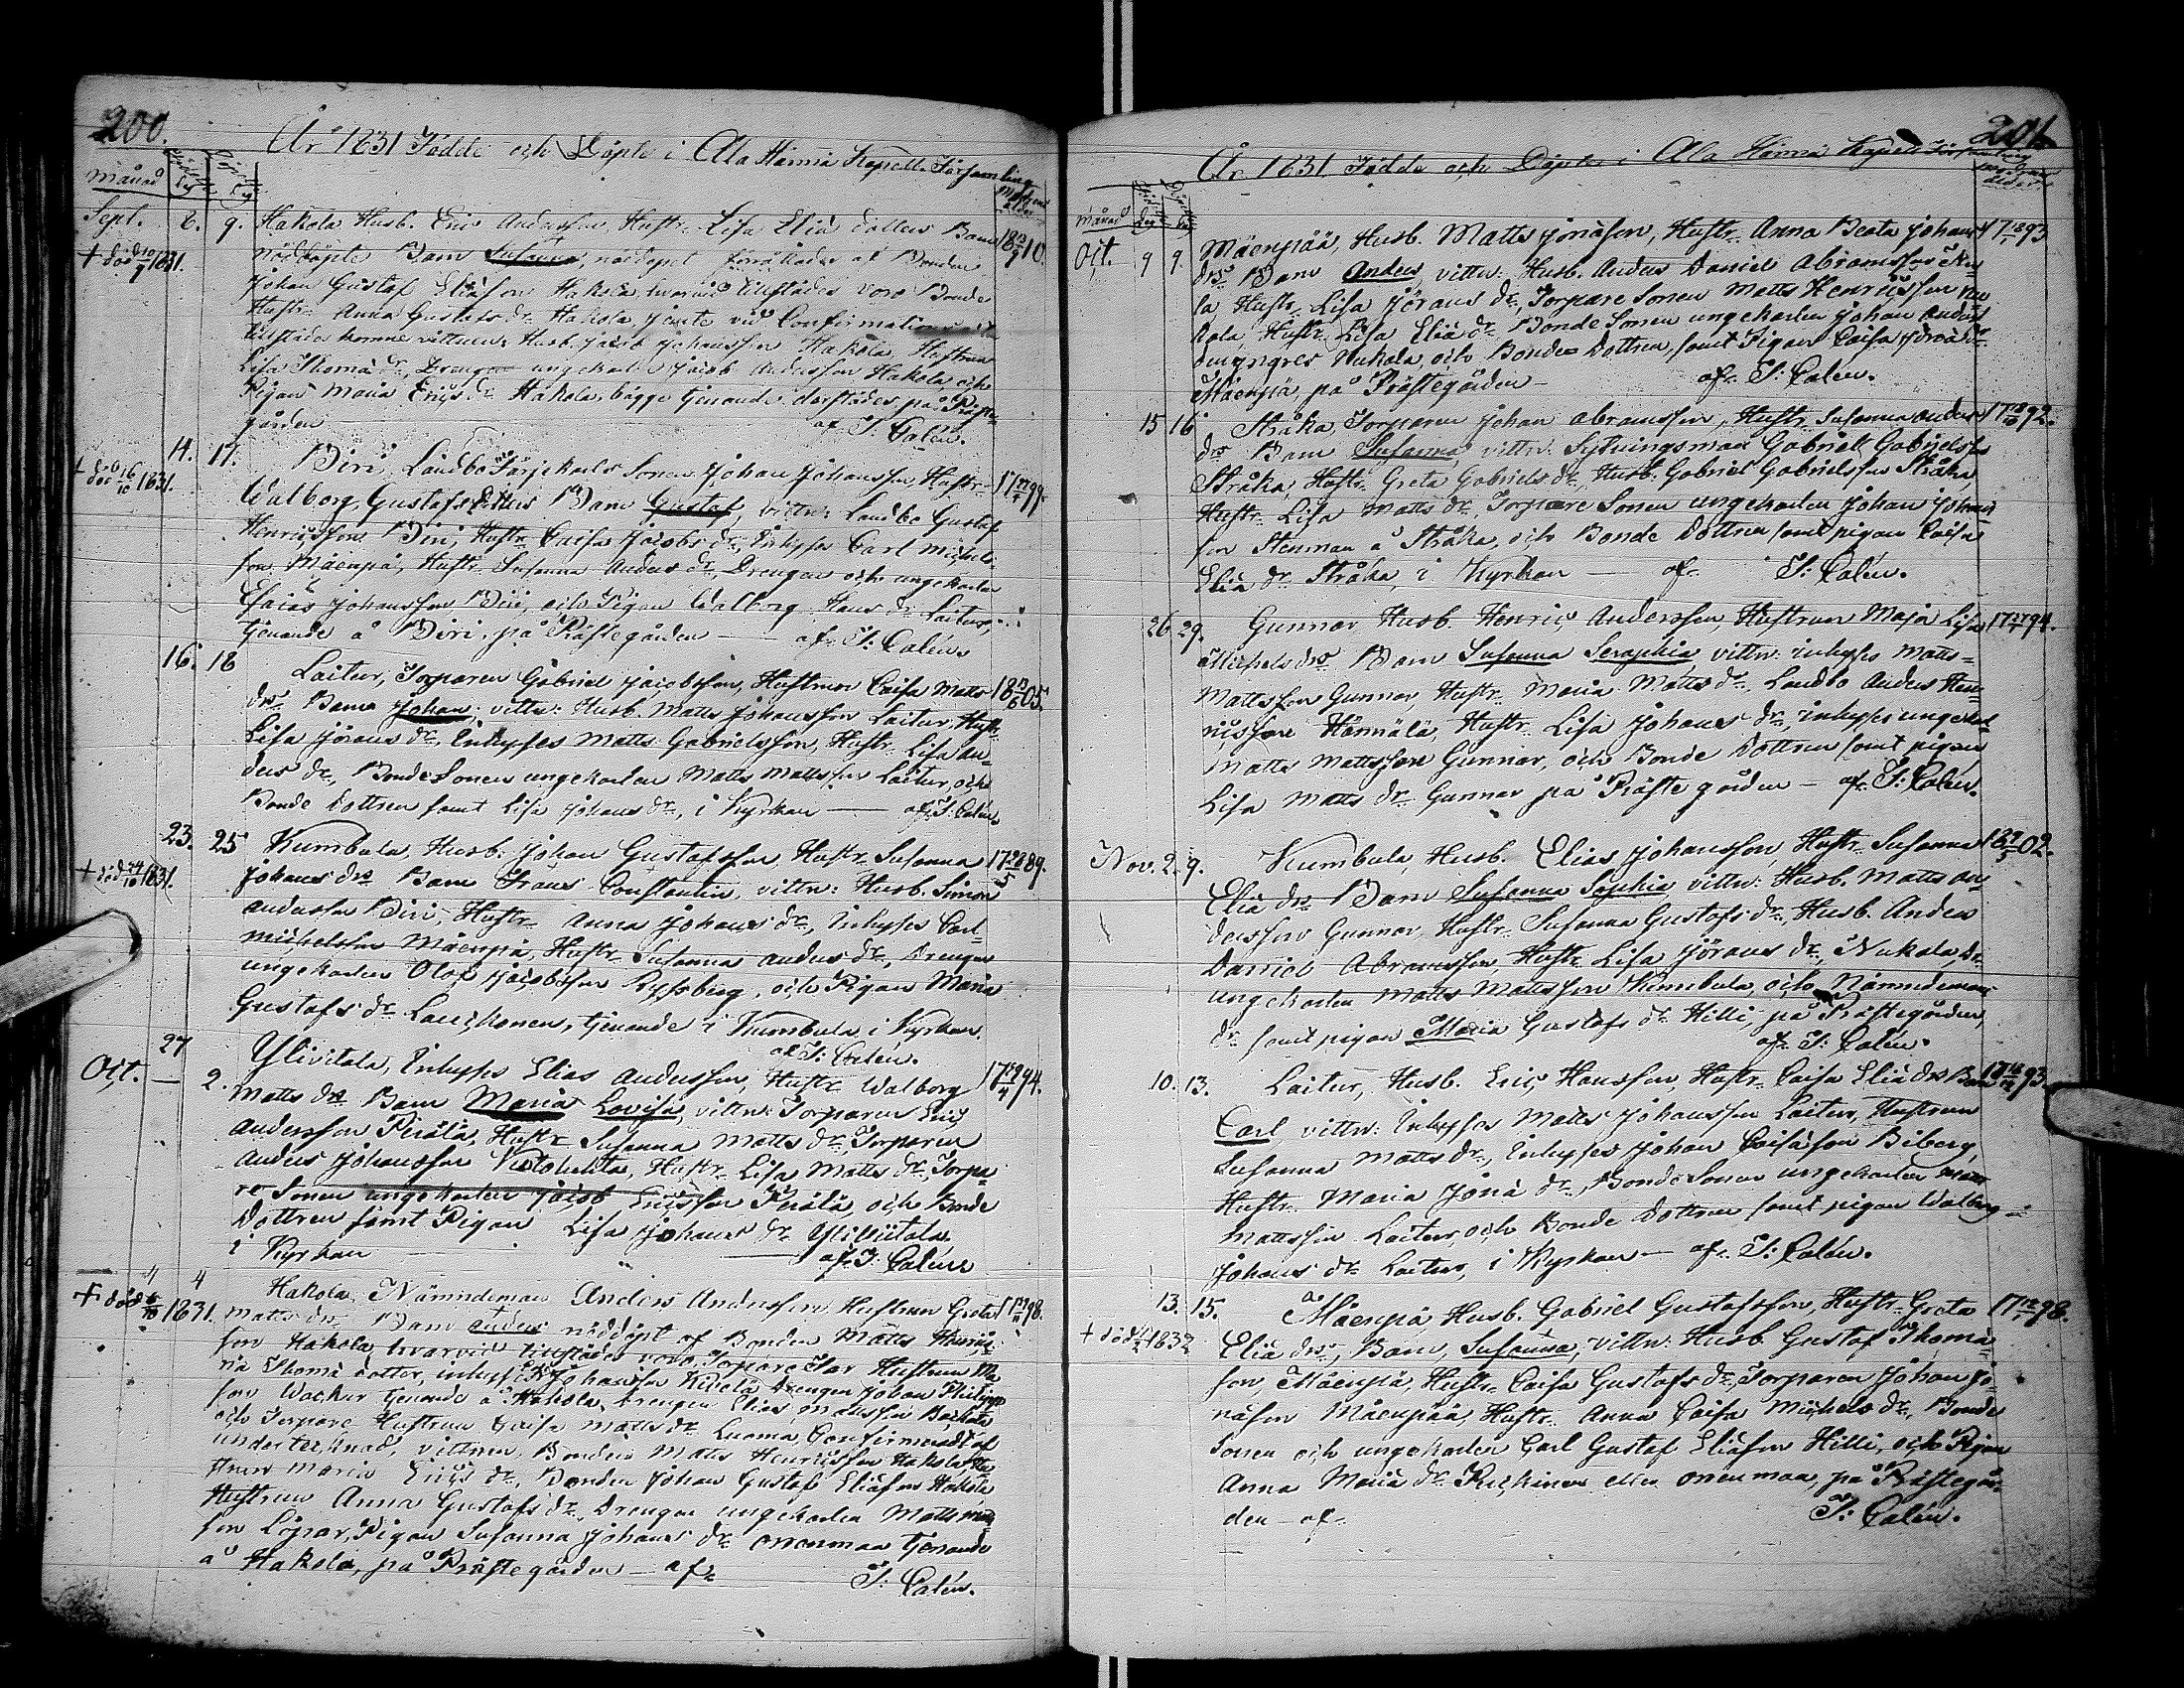 200.
År 1831 Födde och Döpte i Ala Härmä Kapell Församling
Månad
Sept. 6. 9. Hakola Husb. Eric Andersson, Hustr. Lisa Eliä dotters Barn
+ död 10/9 1831. nöddöpte Barn Susanna, nöddopet förrättades af Bonden
Johan Gustaf Eliäson Hakola, hvarvid tillstädes voro Bonde
Hustr. Anna Gustafs dr Hakola, vid Confirmationen
tillstädes komne vittnen: Husb. Jacob Johansson Hakola, Hustrun
Lisa Thomä dr, Drengen ungekarlen Jacob Andersson Hakola och
Pigan Maria Erics dr Hakola, bägge tjenande derstädes, på Präste-
gården af J: Calén.
14. 17. Biri, Landbo Sonen Johan Johansson, Hustr.
+ död 16/10 1831. Walborg Gustafs dotters Barn Gustaf, vittn: Landbo Gustaf
Henricsson Biri, Hustr. Caisa Jacobs dr, Inhyses Carl Michels-
son Mäenpä, Hustr. Susanna Anders dr, Drengen och ungekarlen
Esaias Johansson Biri, och Pigan Walborg Hans dr Laitur,
tjenande å Biri, på Prästegården — af J: Calén.
16. 18 Laitur, Torparen Gabriel Jacobsson, Hustrun Caisa Matts
drs Barn Johan, vittn: Husb. Matts Johansson Laitur, Hustr.
Lisa Jörans dr, Inhyses Matts Gabrielsson, Hustr. Lisa An-
ders dr, Bonde Sonen ungekarlen Matts Mattsson Laitur, och
Bonde dottren samt Lisa Johans dr, i Kyrkan — af J: Calén.
23. 25 Kumbula, Husb. Johan Gustafsson, Hustr. Susanna 17 89.
+ död 24/10 1831. Johans drs Barn Frans Constantin, vittn: Husb. Simon
Andersson Biri, Hustr. Anna Johans dr, Inhyses Carl
Michelsson Mäenpä, Hustr. Susanna Anders dr, Drengen
ungekarlen Olof Jacobsson Ryssberg, och Pigan Maria
Gustafs dr, tjenande i Kumbula i Kyrkan.
af J: Calén.
27
Oct. — 2. Ylivitala, Inhyses Elias Andersson, Hustr. Walborg
Matts drs Barn Maria Lovisa, vittn: Torparen Eric
Andersson Perälä, Hustr. Susanna Matts dr, Torparen
Anders Johansson, Hustr. Lisa Matts dr, Torpa-
re Sonen ungekarlen Jacob Ericsson Perälä, och Bonde
Dottren samt Pigan Lisa Johans dr Ylivitala
i Kyrkan — af J: Calén
" 4 Hakola Nämndeman Anders Andersson Hustrun Greta
+ död 1831. Matts drs Barn Anders nöddöpt af Bonden Matts Henrics-
son Hakola, hvarvid tillstädes voro, Hustrun Ma-
ria Thomä dotter, Johansson Drengen Johan
son Wacker tjenande å Hakola, Drengen Elias Mattsson
och Torpare Hustrun Caisa Matts dr Luoma, Confirmeradt af
undertecknad, vittnen: Bonden Matts Henricsson Hakola, Hu-
strun Maria Erics dr, Bonden Johan Gustaf Eliäson Hakola
Hustrun Anna Gustafs dr, Drengen ungekarlen Matts
son Löpar, Pigan Susanna Johans dr tjenande
å Hakola, på Prästegården — af J: Calén.
201.
År 1831 Födde och Döpte i Ala Härmä Kapell Församling
Månad
Oct. 9 9. Mäenpää, Husb. Matts Jonäson, Hustr. Anna Beata Johans 17 93
drs Barn Anders, vittn: Husb. Anders Daniel Abramsson Nu-
la Hustr. Lisa Jörans dr, Torpare Sonen Matts Henricsson Nu
kala Hustr. Lisa Eliä dr Bonde Sonen ungekarlen Johan Anders
Nukala, och Bonde Dottren, samt Pigan Caisa
Mäenpä, på Prästegården — af J: Calén.
15 16 Stråka Torparen Johan Abramsson, Hustr. Susanna Anders
drs Barn Susanna, vittn: Sytningsman Gabriel Gabrielsson
Stråka, Hustr. Greta Gabriels dr, Husb. Gabriel Gabrielsson Stråka,
Hustr. Lisa Matts dr, Torpare Sonen ungekarlen Johan Johans-
son Stenman å Stråka, och Bonde Dottren samt pigan Caisa
Eliä dr Stråka, i Kyrkan — af J: Calén.
26 29. Gunnar Husb. Henric Andersson, Hustrun Maja Lisa
Michels drs Barn Susanna Seraphia, vittn: Inhyses Matts
Mattsson Gunnar, Hustr. Maria Matts dr, Landbo Anders Hen-
ricsson Härmälä, Hustr. Lisa Johans dr, Inhyses ungekarl
Matts Mattsson Gunnar, och Bonde Dottren samt pigan
Lisa Matts dr Gunnar på Prästegården — af J: Calén.
Nov. 2. 9. Kumbula, Husb. Elias Johansson, Hustr. Susanna
Eliä drs Barn Susanna Sophia, vittn: Husb. Matts An-
dersson Gunnar, Hustr. Susanna Gustafs dr, Husb. Anders
Daniel Abramsson, Hustr. Lisa Jörans dr, Nukala, Dr.
ungekarlen Matts Mattsson Kumbula, och Nämndemans
dr samt pigan Maria Gustafs dr Hilli, på Prästegården,
af J: Calén.
10. 13. Laitur, Husb. Eric Hansson, Hustr. Caisa Eliä drs Barn
Carl, vittn: Inhyses Matts Johansson Laitur, Hustrun
Susanna Matts dr, Inhyses Johan Esaiäson Biberg,
Hustr. Maria Jonä dr, Bonde Sonen ungekarlen Matts
Mattsson Laitur, och Bonde Dottren samt pigan Walborg
Johans dr Laitur, i Kyrkan — af J: Calén.
13. 15. Mäenpä Husb. Gabriel Gustafsson, Hustr. Greta
+ död 1832 Eliä drs, Barn, Susanna, vittn: Husb. Gustaf Thomä-
son, Mäenpä, Hustr. Caisa Gustafs dr, Torparen Johan Jo-
näson Mäenpää, Hustr. Anna Caisa Michels dr, Bonde
Sonen och ungekarlen Carl Gustaf Eliäson Hilli, och Pigan
Anna Maria dr, på Prästegår-
den — af J: Calén.